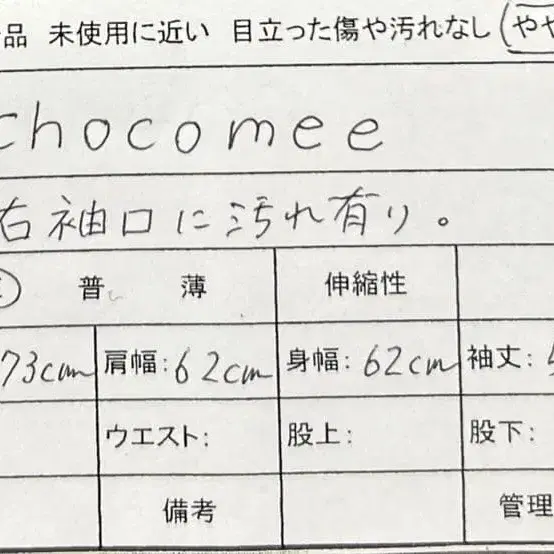 品 未使用に近い 目立った傷や汚れなし やや
chocomee
右袖口に汚れ有り。
普 薄 伸縮性
73cm 肩幅:62cm 身幅:62cm 袖丈:
ウエスト: 股上: 股下:
備考 管理